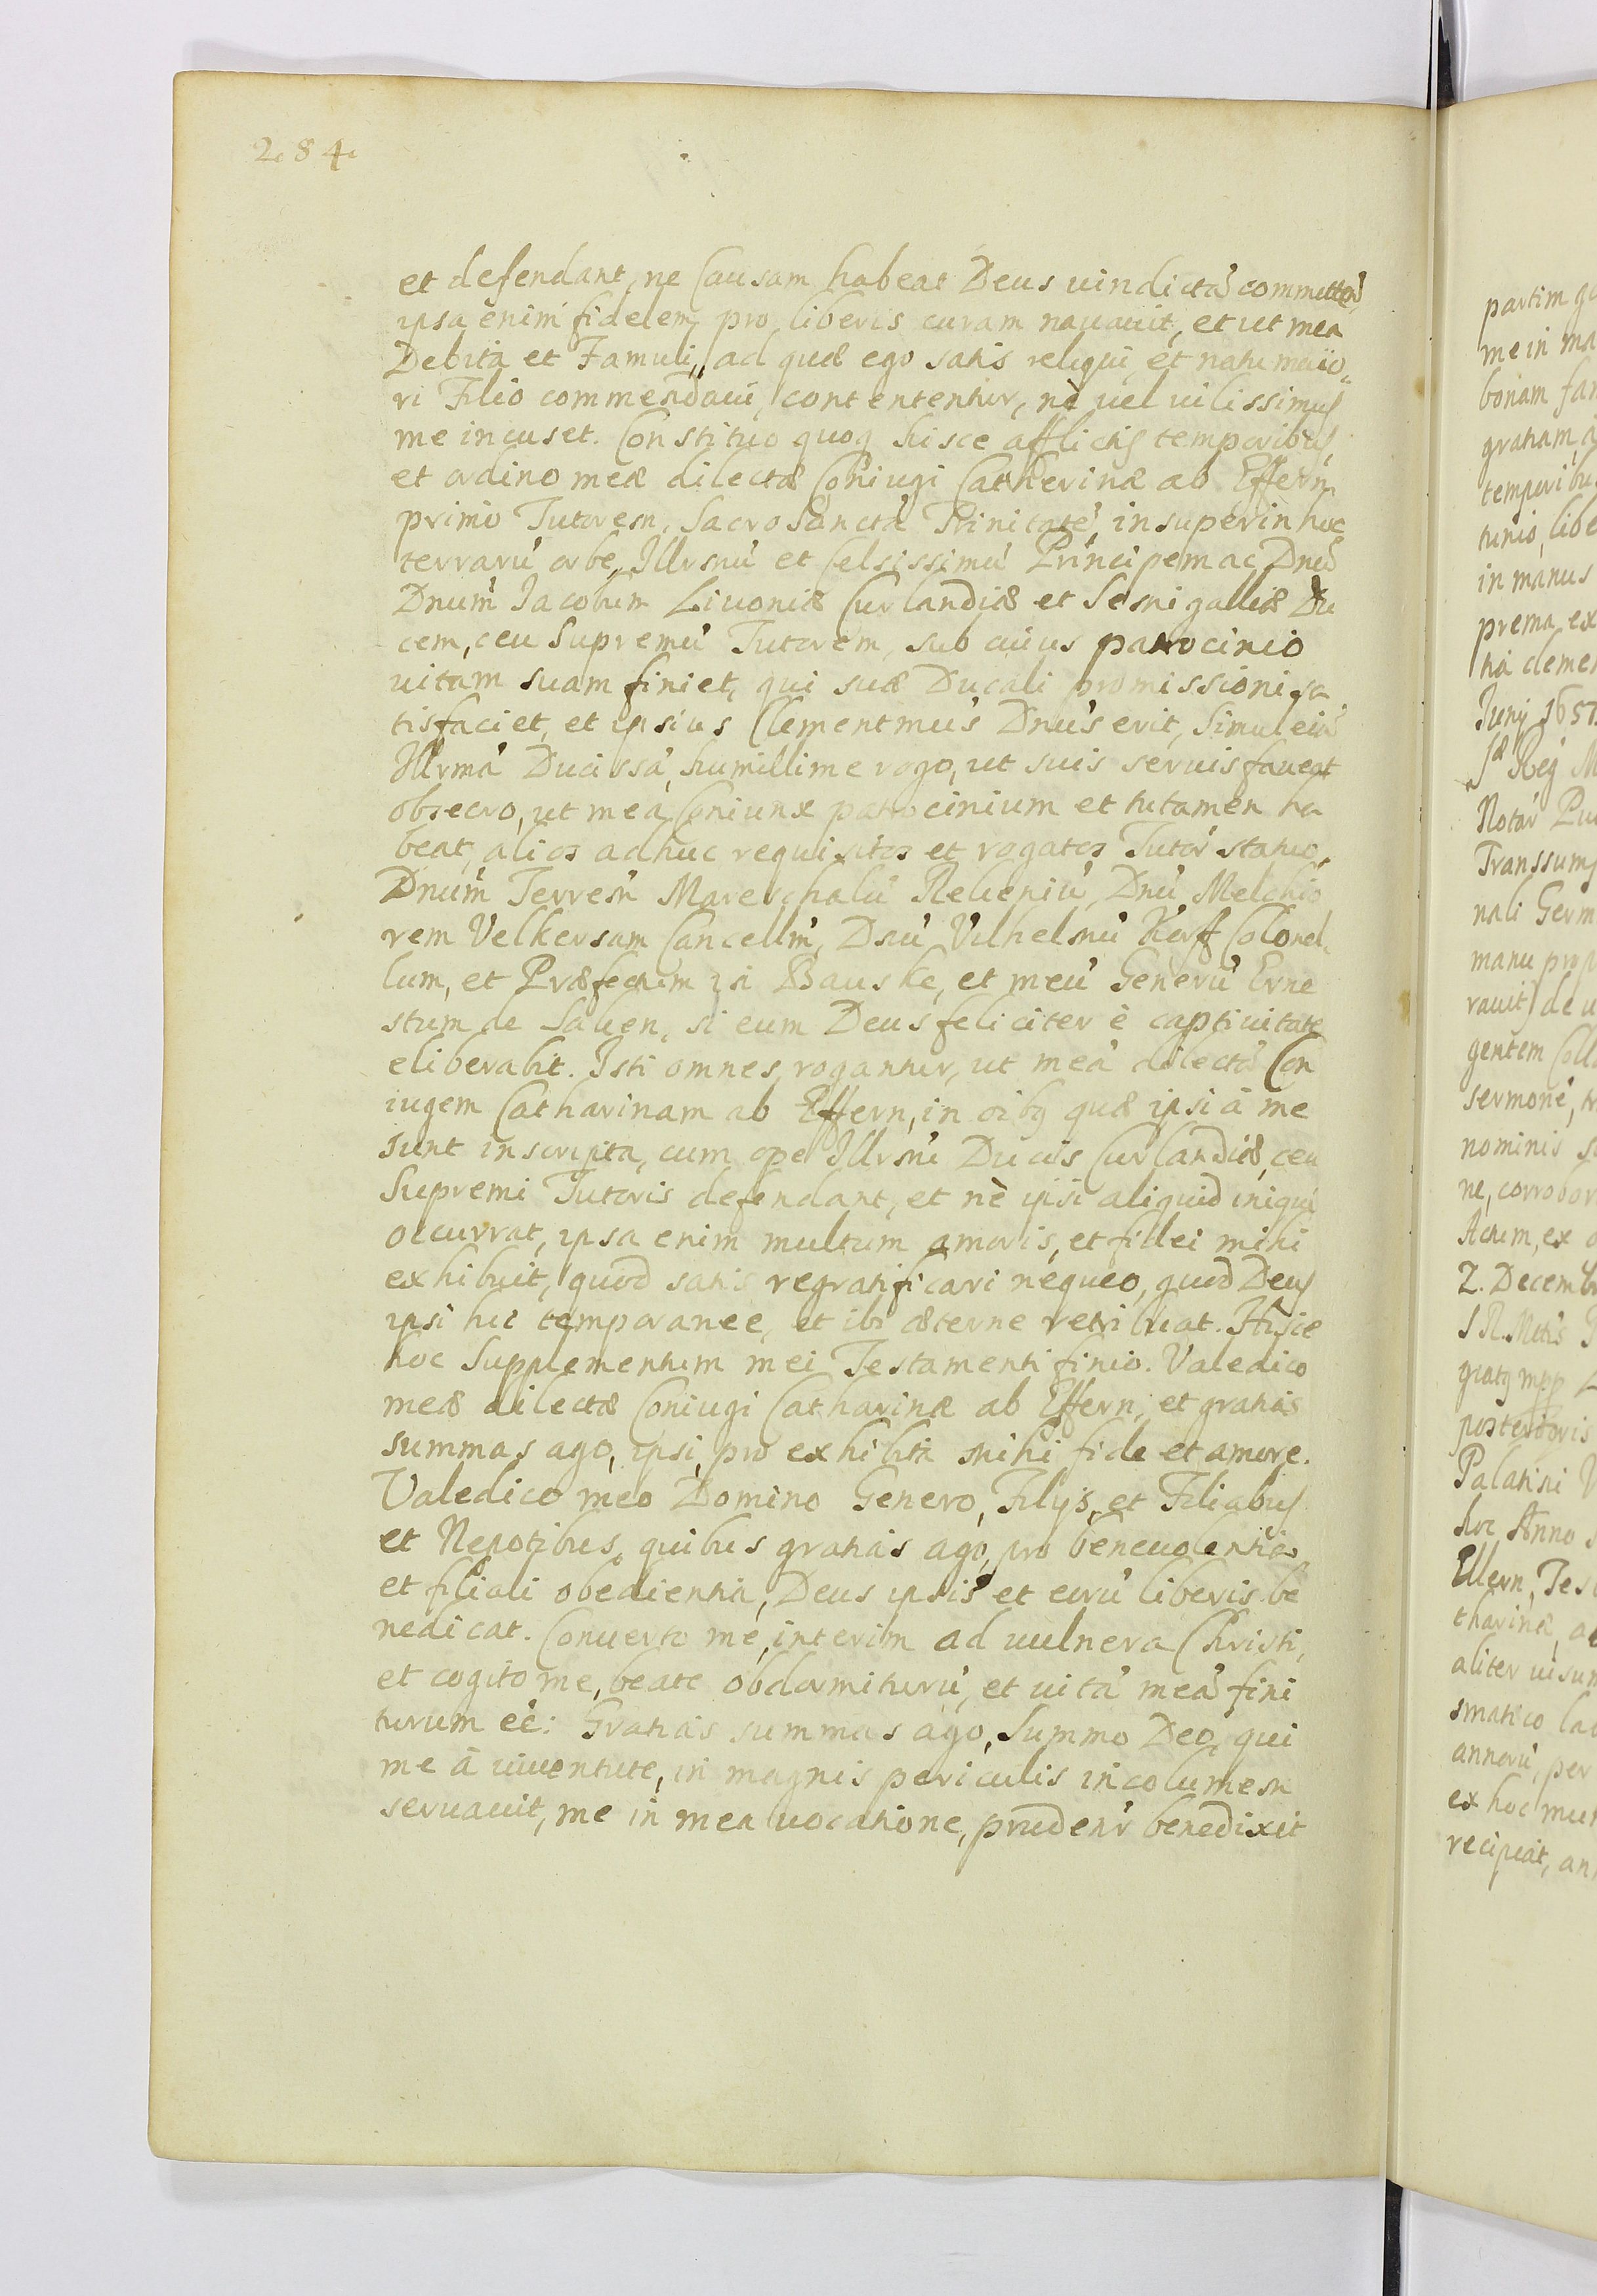 284
et defendant, ne Causam habeat Deus vindictã committẽdi,
ipsa enim fidelem pro liberis curam navavit, et ut mea
Debita et Famuli, ad quæ ego satis reliqui, et natu maio„
ri Filio commendavi, contententur, nè vel vilissimus
me incuset. Constituo quoq hisce afflictis temporibus,
et ordino meæ dilectæ Coniugi Catherinæ ab Effern
primo Tutorem, Sacrosanctã Trinitatẽ, insuper in hoc
terrarũ orbe, Illrmũ et Celsissimũ Principem ac Dnũ
Dnum Jacobum Livoniæ Curlandiæ et Semigalliæ Du
cem, ceu Supremũ Tutorem, sub cuius patrocinio
vitam suam finiet, qui suæ Ducali promissioni sa
tisfaciet, et ipsius Clementmus Dnus erit, Simul eiũ
Illrmã Ducissã, humillime rogo, ut suis servis faveat
obsecro, ut mea Coniunx patrocinium et tutamen ha
beat, alios adhuc requisitos et rogatos Tutor statuo,
Dnum Terresn Mareschalũ Releniũ, Dnũ Melchio
rem Velkersam Cancellm, Dnũ Vilhelmũ Korff Colonel„
lum, et Præfectum in Bauske, et meũ Generũ Erne
stum de Saken, si eum Deus feliciter è captivitate
eliberabit. Isti omnes rogantur, ut meã dilectã Con
iugem Catharinam ab Effern, in oibq quæ ipsi à me
sunt inscripta, cum ope Illrmi Ducis Curlandiæ, ceu
Supremi Tutoris defendant, et nè ipsi aliquid iniqui
occurrat, ipsa enim multum amoris, et fidei mihi
exhibuit, quod satis regratificari nequeo, quod Deus
ipsi hic temporanee, et ibi æterne retribuat. Hisce
hoc Supplementum mei Testamenti finio. Valedico
meæ dilectæ Coniugi Catharinæ ab Effern, et gratias
summas ago, ipsi, pro exhibita mihi fide et amore.
Valedico meo Domino Genero, Filijs, et Filiabus
et Nepotibus, quibus gratias ago, pro benevolentia
et filiali obedientia, Deus ipsis et eorũ liberis be
nedicat. Converto me, interim ad vulnera Christi,
et cogito me, beate obdormiturũ, et vitã meã fini
turum eẽ: Gratias summas ago, Summo Deo, qui
me à iuventute, in magnis periculis incolumem
servavit, me in mea vocatione, prudentr benedixit
partim
me in ma
bonam fam
gratiam, a
temporibu
tunio, libe
in manus
prema ex
tia clemen
Junij 1657
Sæ Reg M
Notar Pu
Transsump
nali Germ
manu prop
ravit) de v
gentem Coll
sermonẽ, tr
nominis su
ne, corrobor
Actum, ex
2. Decemb
S R. Mttis
gratq mpp
posterioris
Palatini V
hoc Anno
Effern, Tes
tharinæ, a
aliter visum
smatico lac
annorũ, per
ex hoc mun
recipiat, an